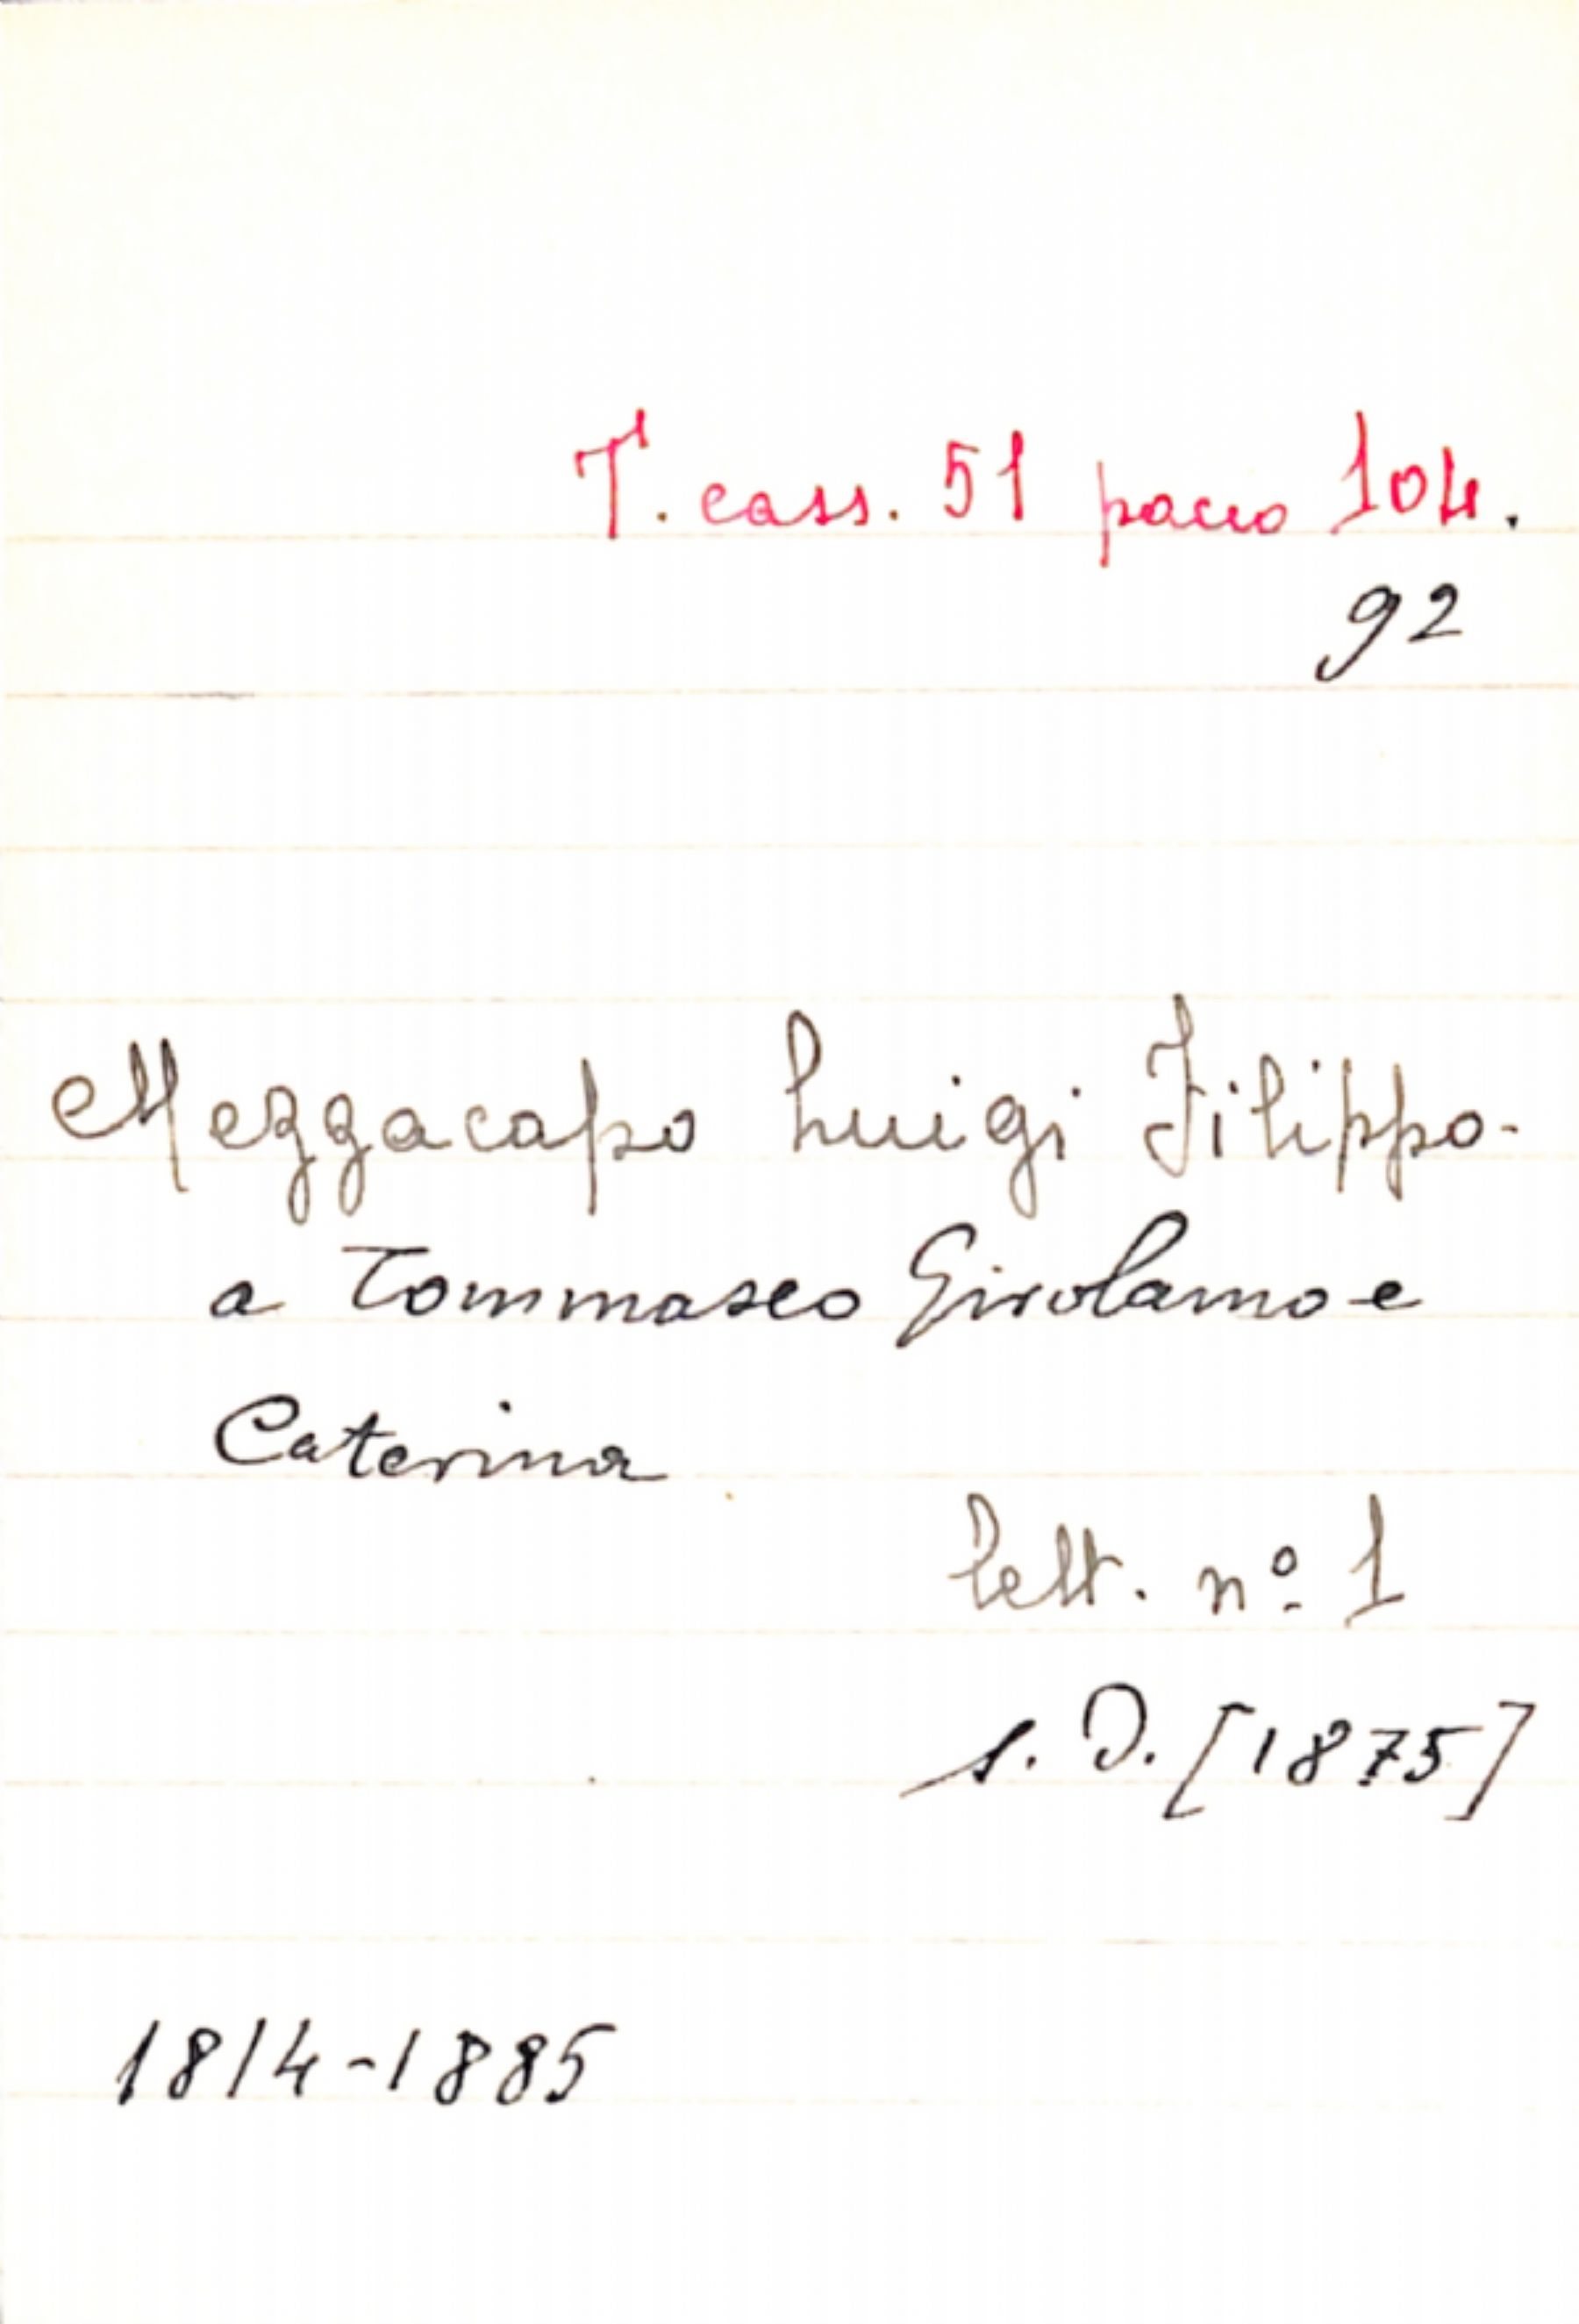 T. cass. 51 pacco 104.
92
Mezzacapo Luigi Filippo-
a Tommaseo Girolamo e
Caterina
lett. nº 1
s. D. [1875]
1814-1885